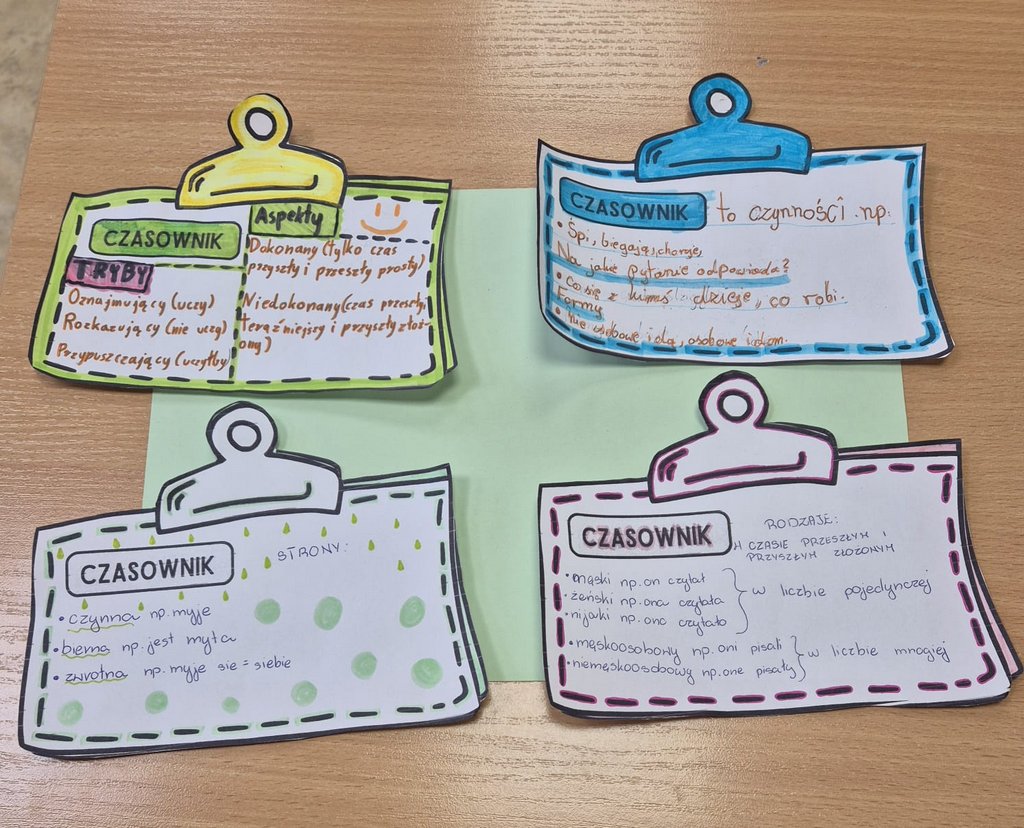 CZASOWNIK
TRYBY
Oznajmujący (uczy)
Rozkazujący (nie uczy)
Przypuszczający (uczyłby)
Aspekty
Dokonany (tylko czas
przyszły i przeszły prosty)
Niedokonany (czas przeszły,
teraźniejszy i przyszły złoż-
ony)
CZASOWNIK to czynności np:
• Śpi, biegają, choruje,
Na jakie pytanie odpowiada?
• Co się z kimś dzieje, co robi.
Formy
• nie osobowe i
CZASOWNIK
STRONY:
• czynna np. myje
• bierna np. jest myta
• zwrotna np. myje sie = siebie
CZASOWNIK
RODZAJE:
W CZASIE PRZESZŁYM I
PRZYSZŁYM ZŁOŻONYM
• męski np. on czytał
• żeński np. ona czytała
• nijaki np. ono czytało
w liczbie pojedynczej
• męskoosobowy np. oni pisali
• niemęskoosobowy np. one pisały
w liczbie mnogiej